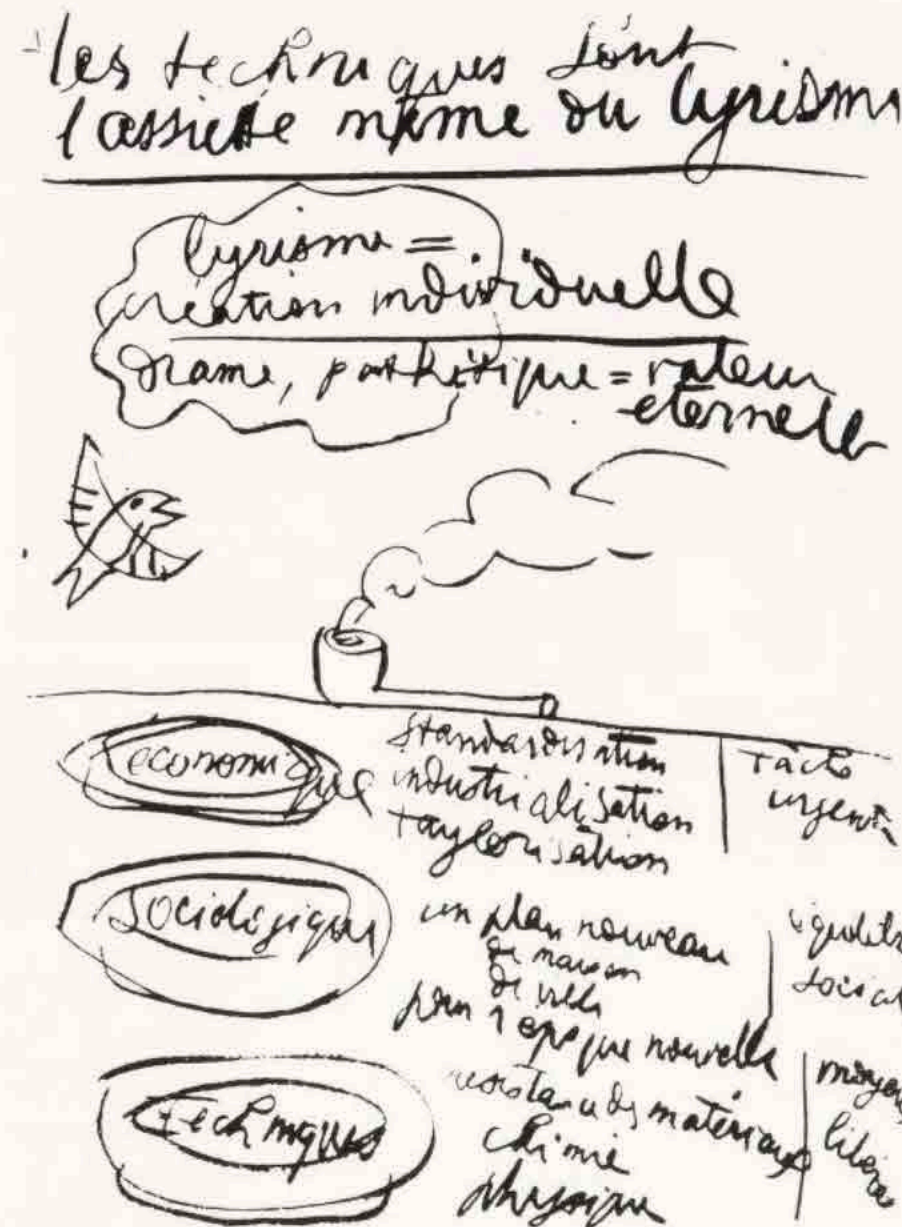 les techniques sont
l'assiette même du lyrism
lyrisme =
création individuelle
drame, pathétique = valeur
eternelle
economique
standardisation
industrialisation
taylorisation
tâche
urgent
sociologique
un plan nouveau
de maison
de ville
pour 1 epoque nouvelle
social
techniques
resistance des matériaux
chimie
physique
moyens